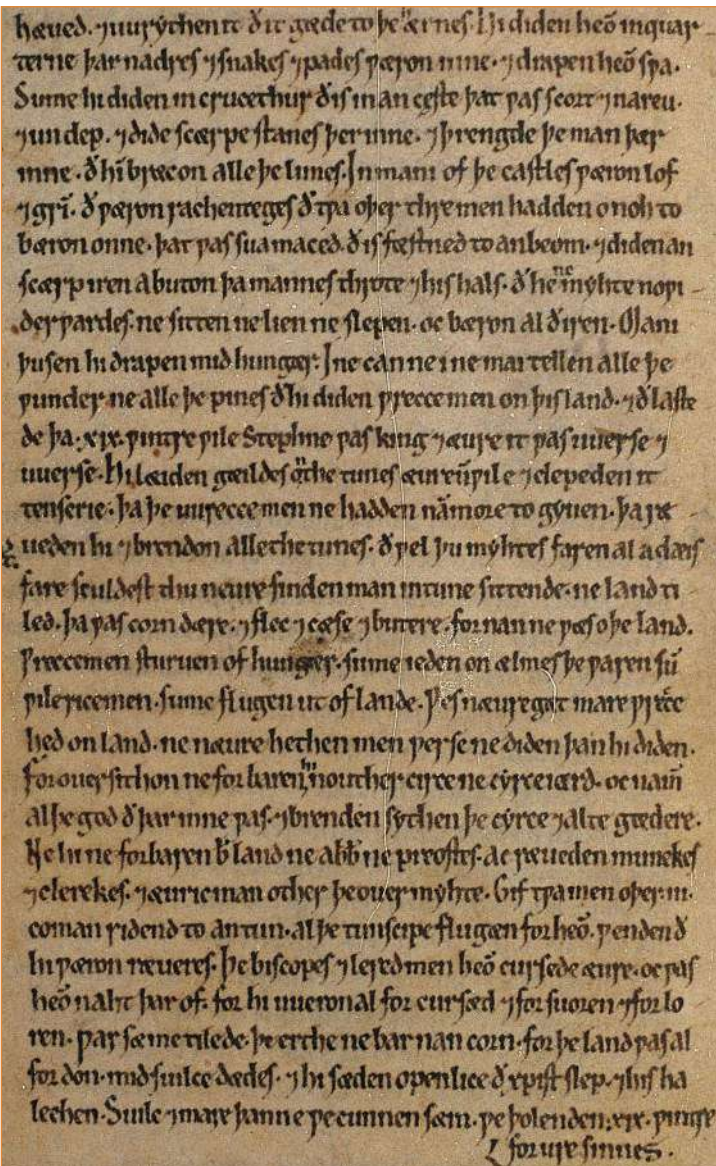 hæued. ⁊ uurythen it ꝥ it gæde to þe hærnes. Hi diden heō in quar
terne þar nadres ⁊ snakes ⁊ pades ƿæron inne. ⁊ drapen heō sƿa.
Sume hi diden in crucethur ꝥ is in an ceste þat ƿas scort ⁊ nareu.
⁊ un dep. ⁊ dide scærpe stanes þer inne. ⁊ þrengde þe man þær
inne. ꝥ hī bræcon alle þe limes. In mani of þe castles ƿæron lof
⁊ grī. ꝥ ƿæron rachenteges ꝥ tƿa oþer thre men hadden onoh to
bæron onne. þat ƿas sua maced. ꝥ is fæstned to an beom. ⁊ diden an
scærp iren abuton þa mannes throte ⁊ his hals. ꝥ he ne myhte noƿi
derƿardes. ne sitten ne lien ne slepen. oc bæron al ꝥ iren. Mani
þusen hi drapen mid hungær. I ne can ne i ne mai tellen alle þe
ƿunder ne alle þe pines ꝥ hi diden ƿrecce men on þis land. ⁊ ꝥ laste
de þa .xix. ƿintre ƿile Stephne ƿas king ⁊ æure it ƿas uuerse ⁊
uuerse. Hi læiden gæildes on the tunes æure ū ƿile ⁊ clepeden it
tenserie. þa þe uurecce men ne hadden nā more to gyuen. þa ræ
ueden hi ⁊ brendon alle the tunes. ꝥ ƿel þu myhtes faren al a dæis
fare sculdest thu neure finden man in tune sittende. ne land ti
led. þa ƿas corn dære. ⁊ flec ⁊ cæse ⁊ butere. for nan ne ƿæs o þe land.
Ƿrecce men sturuen of hungær. sume ieden on ælmes þe ƿaren sū
ƿile rice men. sume flugen ut of lande. Ƿes næure gæt mare ƿrecce
hed on land. ne næure hethen men ƿerse ne diden þan hi diden.
for ouer sithon ne for baren hi nouther circe ne cyrceiærd. oc namɩ̄
al þe god ꝥ þar inne ƿas. ⁊ brenden sythen þe cyrce ⁊ alte gædere.
Ne hi ne forbaren b̄ land ne abb̄ ne preostes. ac ræueden munekes
⁊ clerekes. ⁊ æuric man other þe ouer myhte. Gif tƿa men oþer .iii.
coman ridend to an tun. al þe tunscipe flugæn for heō. ƿenden ꝥ
hi ƿæron ræueres. Þe biscopes ⁊ lered men heō cursede æure. oc ƿas
heō naht þar of. for hi uueron al for cursæd ⁊ for suoren ⁊ for lo
ren. Ƿar sæ me tilede. þe erthe ne bar nan corn. for þe land ƿas al
for don. mid suilce dædes. ⁊ hi sæden openlice ꝥ xp̄ist slep. ⁊ his ha
lechen. Suilc ⁊ mare þanne ƿe cunnen sæin. ƿe þolenden .xix. ƿintre
for ure sinnes.